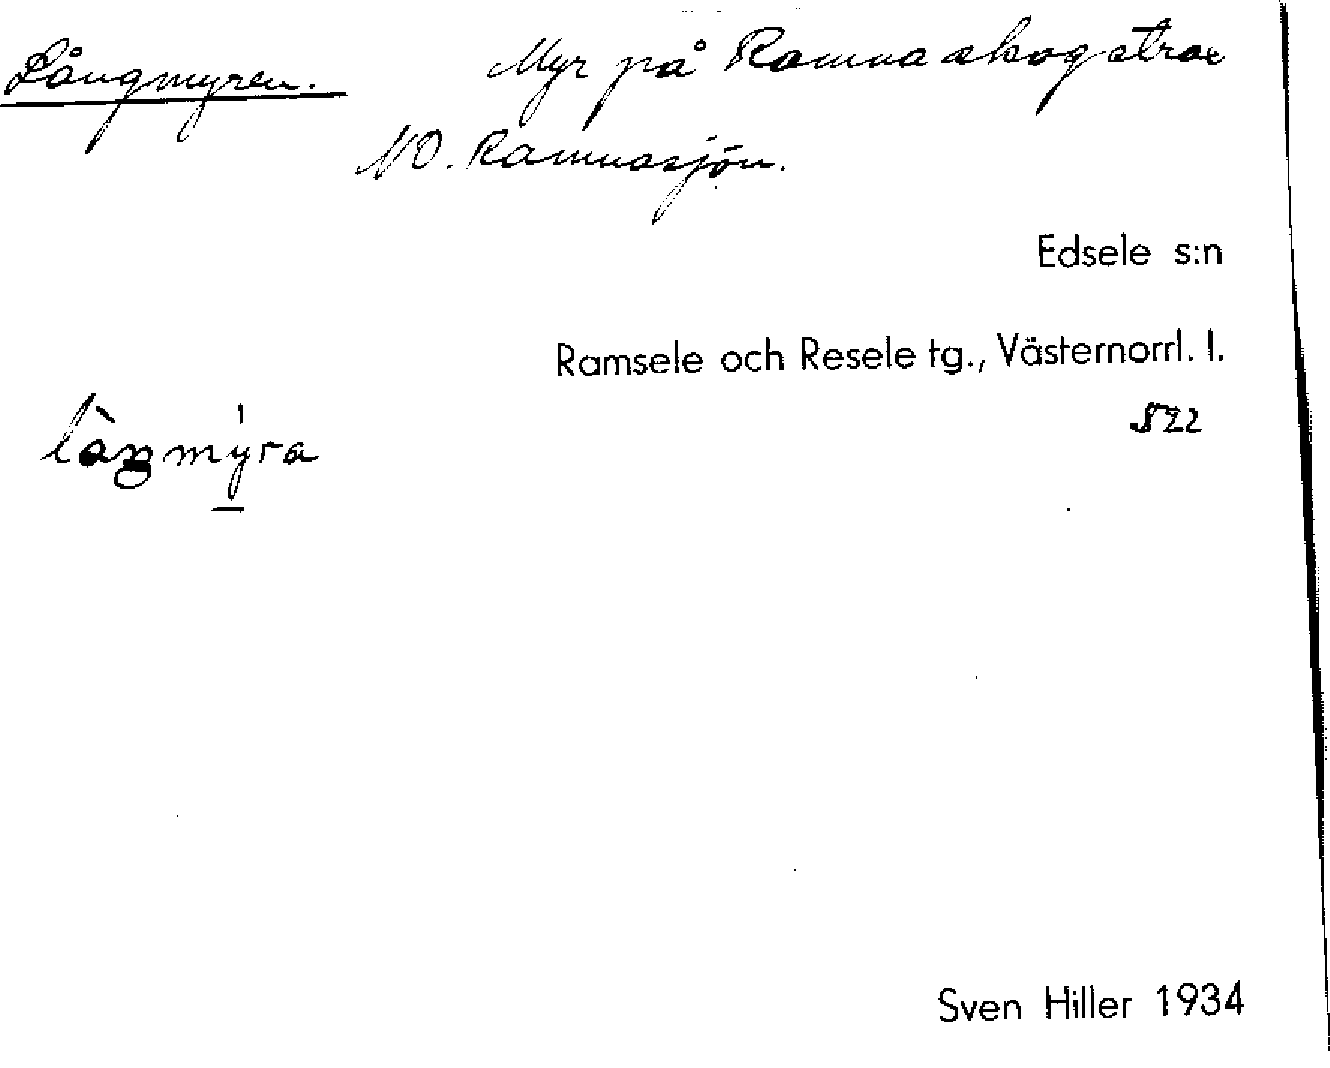 Långmyren. Myr på Ramna skog strax
NO. Ramnasjön.
Edsele s:n
Ramsele och Resele tg., Västernorrl. l.
522
Sven Hiller 1934